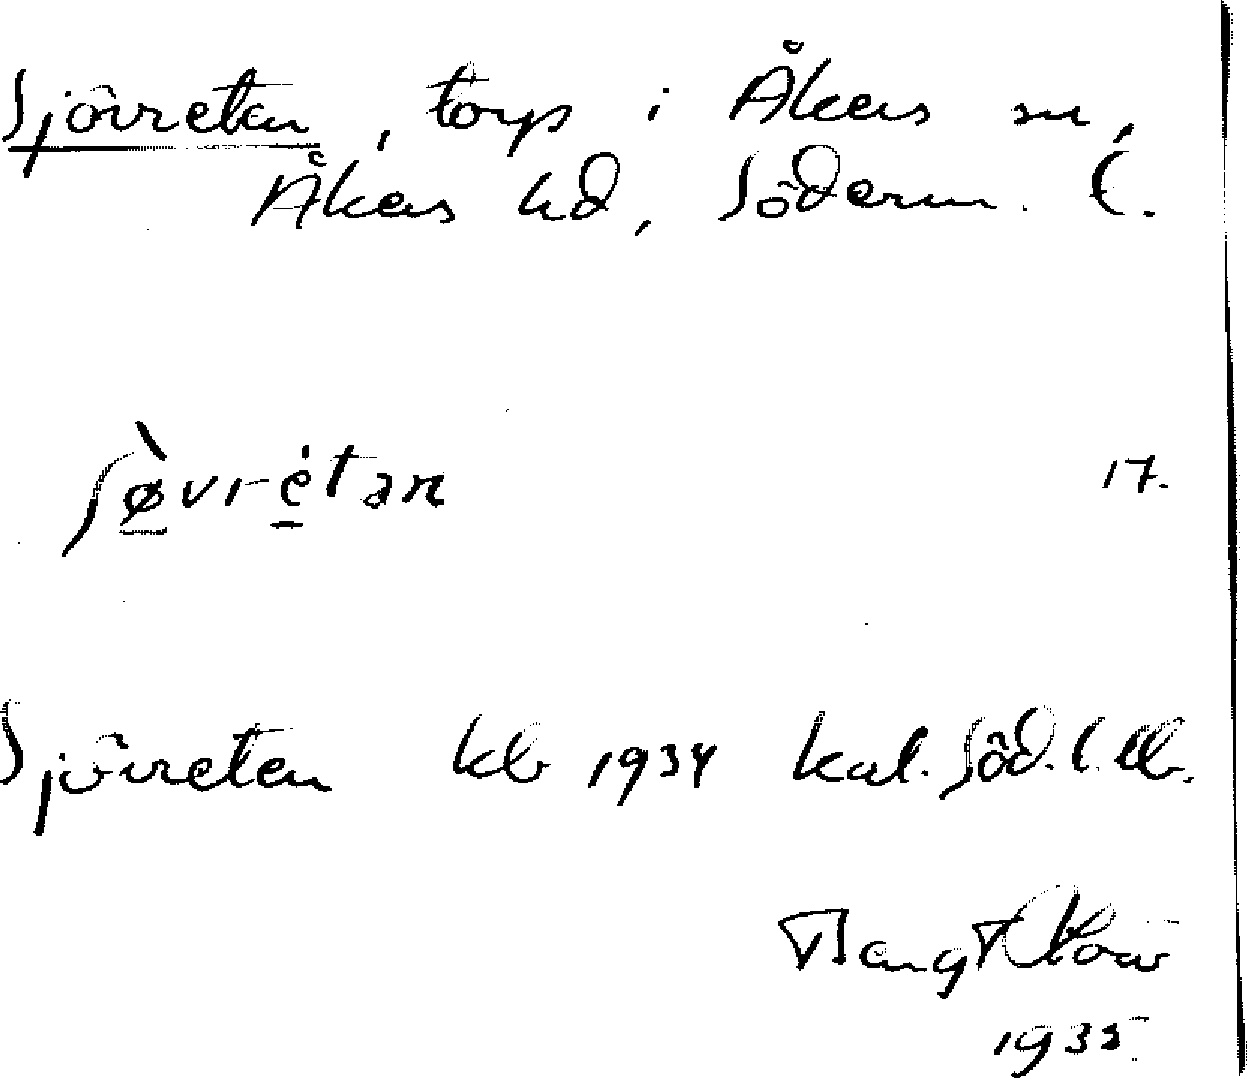 Sjövretan, torp i Åkers sn,
Åkers hd, Söderm. l.
ʃø̀vrétan 17.
Sjövretan kb 1934 kal. Söd. l. Ub.
Bengt
1935